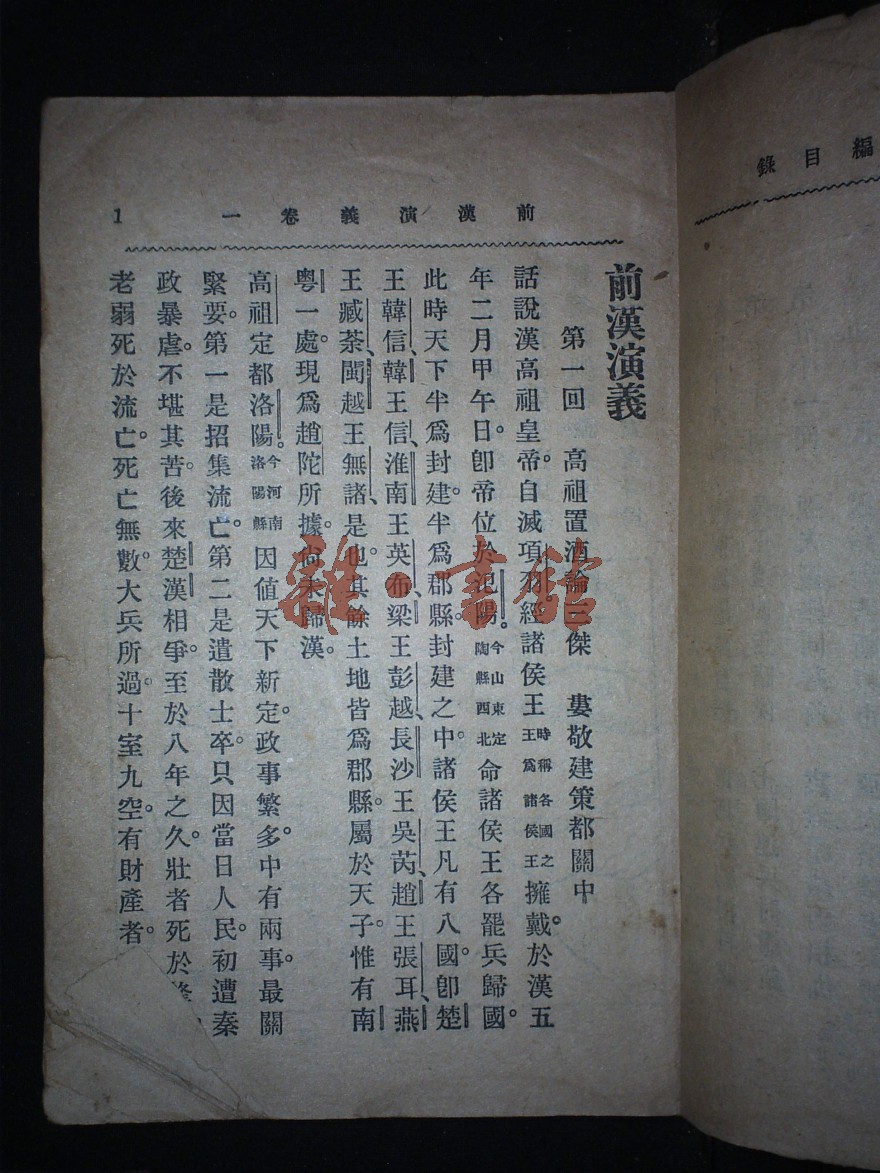 編目錄
前漢演義卷一 1
前漢演義
第一回 高祖置酒論三傑 婁敬建策都關中
話說漢高祖皇帝。自滅項羽。經諸侯王時稱各國之王為諸侯王擁戴。於漢五
年二月甲午日。卽帝位於汜陽。今山東定陶縣西北命諸侯王各罷兵歸國。
此時天下半爲封建。半爲郡縣。封建之中。諸侯王凡有八國。卽楚
王韓信、韓王信、淮南王英布、梁王彭越、長沙王吳芮、趙王張耳、燕
王臧荼、閩越王無諸、是也。其餘土地皆爲郡縣。屬於天子。惟有南
粵一處。現爲趙陀所據。尙未歸漢。
高祖定都洛陽。今河南洛陽縣因値天下新定。政事繁多。中有兩事。最關
緊要。第一是招集流亡。第二是遣散士卒。只因當日人民。初遭秦
政暴虐。不堪其苦。後來楚漢相爭。至於八年之久。壯者死於
老弱死於流亡。死亡無數。大兵所過。十室九空。有財產者。
雜·書館